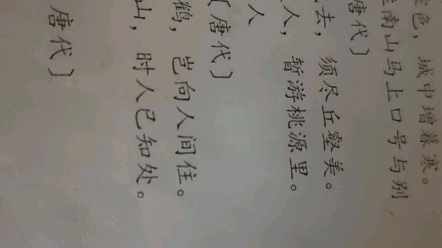 色，城中增暮寒。
南山马上口号与别
唐代〕
去，须尽丘壑美。
人，暂游桃源里。
人
〔唐代〕
鹤，岂向人间住。
山，时人已知处。
唐代〕